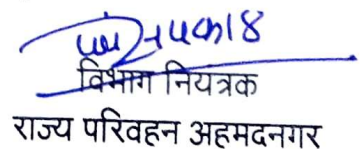 विभाग नियत्रक
राज्य परिवहन अहमदनगर